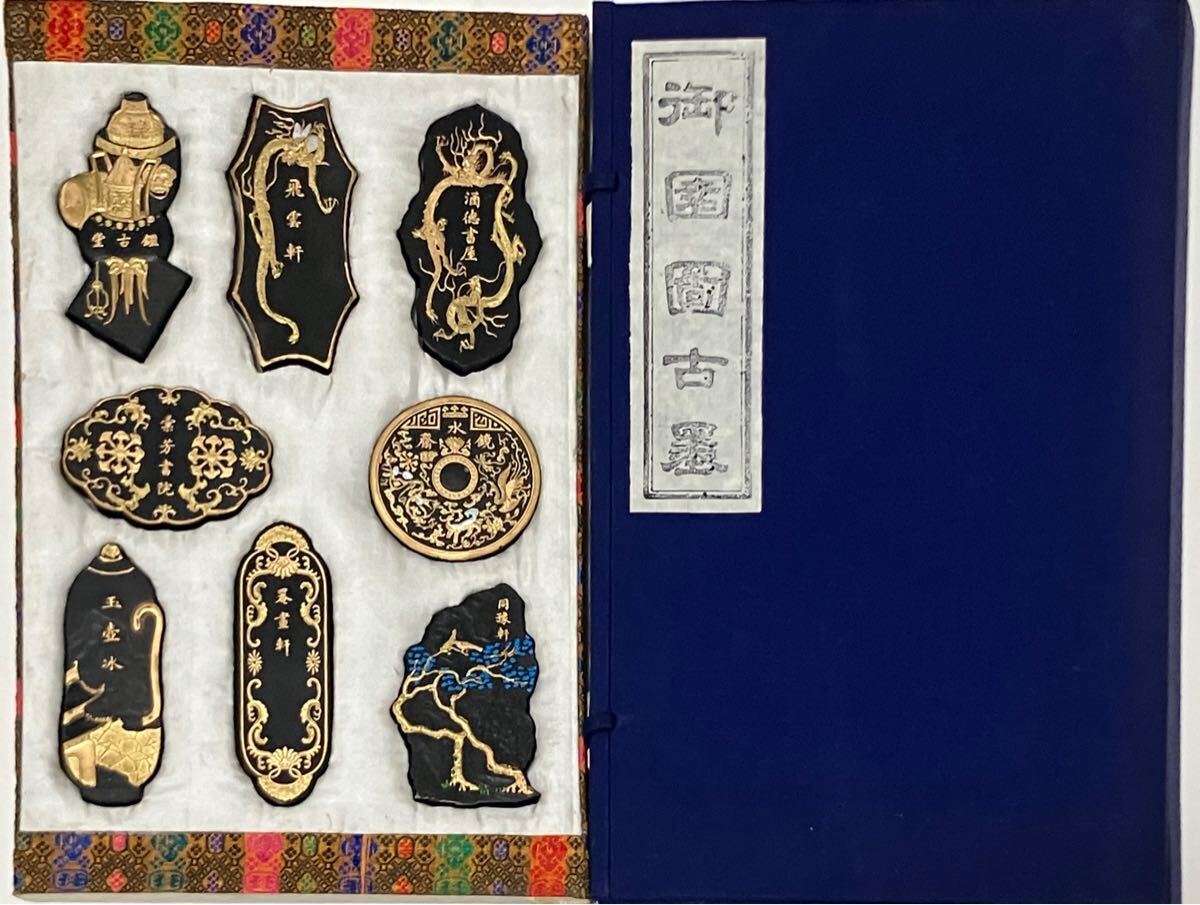 御園圖古墨
鑑古堂
飛雲軒
涵德書屋
彙芳書院
鏡水齋
玉壺冰
畫軒
同豫軒